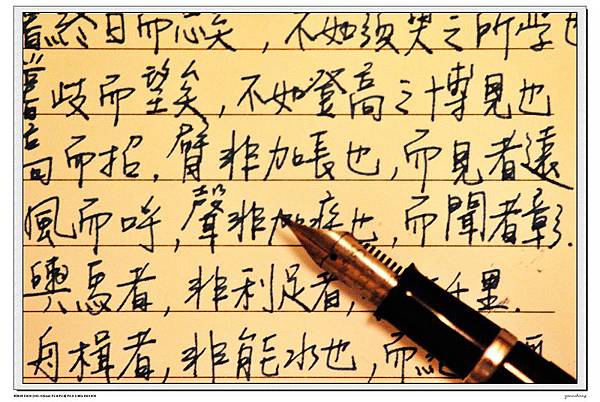 終日而思矣，不如須臾之所学也
嘗歧而望矣，不如登高之博見也
高而招，臂非加長也，而見者遠
風而呼，聲非加疾也，而聞者彰.
輿馬者，非利足者，千里.
舟楫者，非能水也，而絕